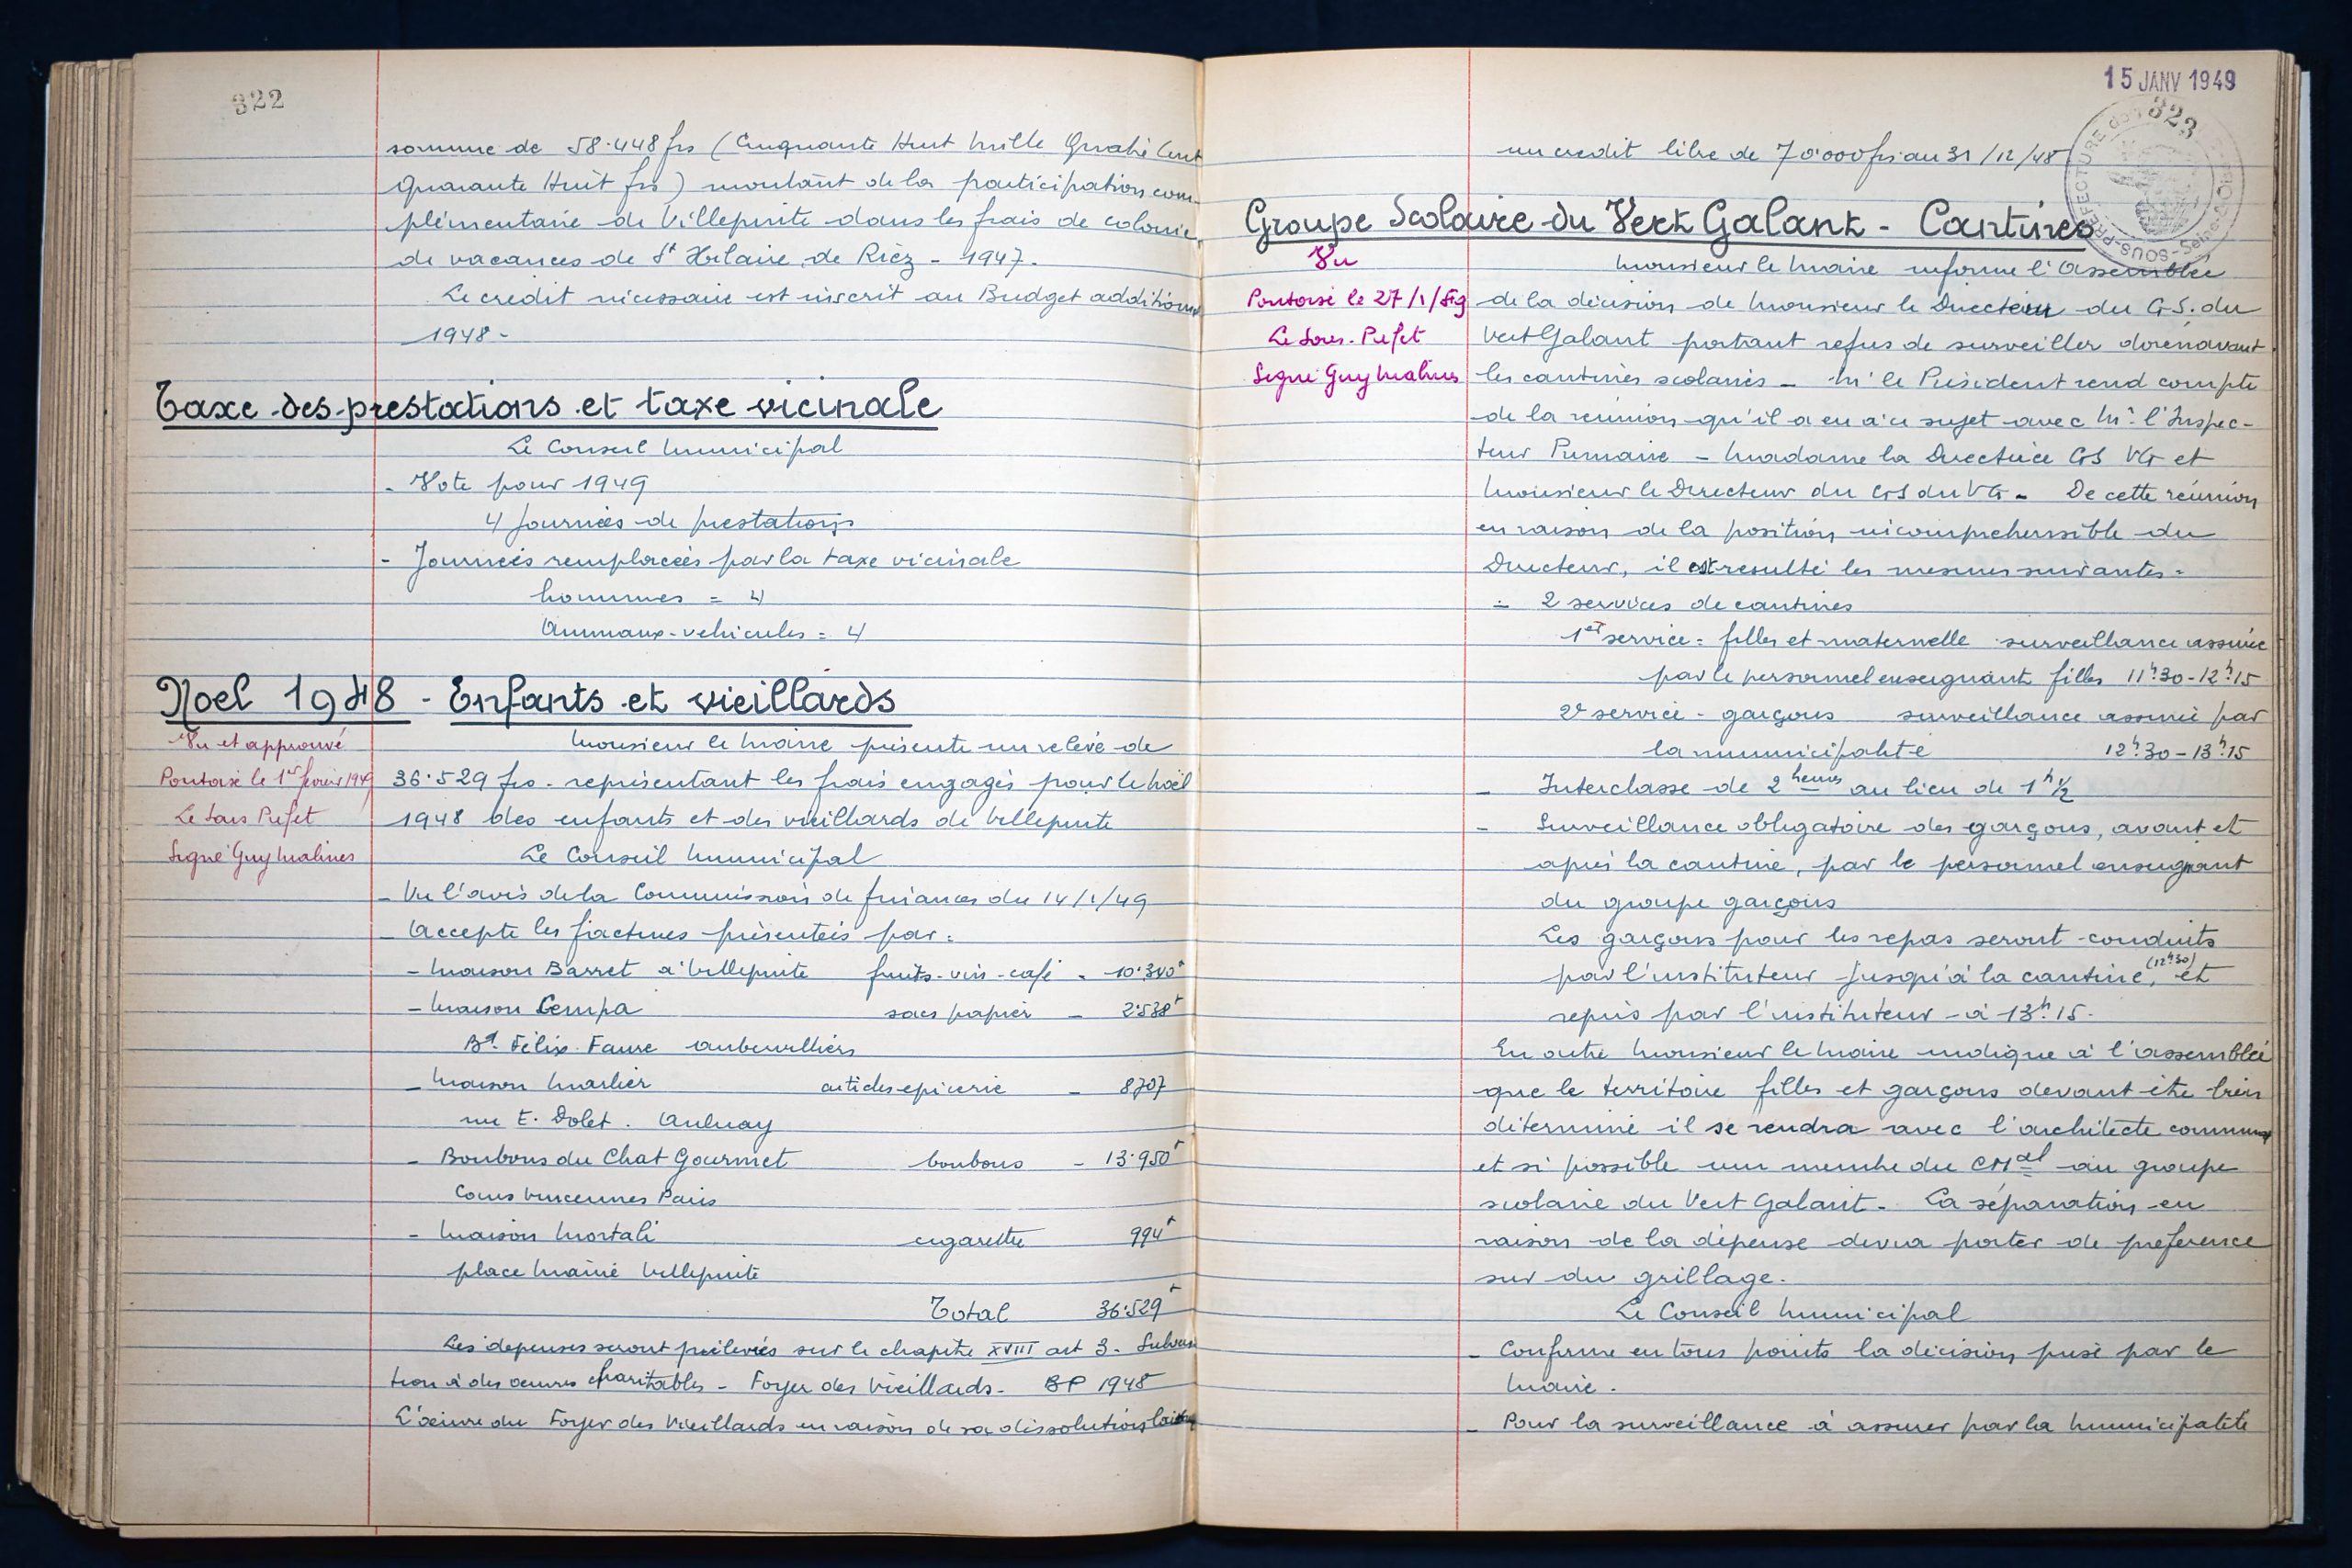 322
somme de 58.448 frs (Cinquante Huit Mille Quatre Cent
Quarante Huit frs) montant de la participation com-
plémentaire de Villepinte dans les frais de colonie
de vacances de St Hilaire de Riez - 1947.
Le crédit nécessaire est inscrit au Budget additionnel
1948 -
Taxe des prestations et taxe vicinale
Le Conseil Municipal
- Vote pour 1949
4 journées de prestations
- Journées remplacées par la taxe vicinale
hommes = 4
Animaux-vehicules = 4
Noel 1948 - Enfants et vieillards
Vu et approuvé
Pontoise le 1er février 1949
Le Sous Prefet
Signé Guy Malines
Monsieur le Maire présente un relevé de
36.529 frs. représentant les frais engagés pour le Noël
1948 des enfants et des vieillards de Villepinte
Le Conseil Municipal
- Vu l'avis de la Commission de finances du 14/1/49
- Accepte les factures présentées par :
- Maison Barret à Villepinte fruits-vin-café - 10.340 f
- Maison Cempa sacs papier - 2.538 f
Bd. Félix Faure Aubervilliers
- Maison Marlier articles epicerie - 8707
rue E. Dolet. Aulnay
- Bonbons du Chat Gourmet bonbons - 13.950 f
Cours Vincennes Paris
- Maison Mortali cigarettes 994 f
place Mairie Villepinte
Total 36.529 f
Les dépenses seront prélevées sur le chapitre XVIII art 3. Subven
tion à des oeuvres charitables - Foyer des Vieillards - BP 1948
L'oeuvre du Foyer des Vieillards en raison de sa dissolution
15 JANV 1949
323
SOUS-PREFECTURE de
Seine-&-Oise
un credit libre de 70.000 frs au 31/12/48
Groupe Scolaire du Vert Galant - Cantines
Vu
Pontoise le 27/1/49
Le Sous-Prefet
Signé Guy Malines
Monsieur le Maire informe l'Assemblée
de la décision de Monsieur le Directeur du G.S. du
Vert Galant portant refus de surveiller dorénavant
les cantines scolaires - Mr le Président rend compte
de la réunion qu'il a eu à ce sujet avec Mr. l'Inspec-
teur Primaire - Madame la Directrice GS VG et
Monsieur le Directeur du GS du VG - De cette réunion
en raison de la position incomprehenssible du
Directeur, il est resulté les mesures suivantes -
- 2 services de cantines
1er service = filles et maternelle surveillance assurée
par le personnel enseignant filles 11h30-12h15
2e service - garçons surveillance assurée par
la municipalité 12h30-13h15
- Interclasse de 2 heures au lieu de 1h 1/2
- Surveillance obligatoire des garçons, avant et
après la cantine, par le personnel enseignant
du groupe garçons
Les garçons pour les repas seront conduits
par l'instituteur jusqu'à la cantine, (12h30) et
repris par l'instituteur - à 13h.15.
En outre Monsieur le Maire indique à l'assemblée
que le territoire filles et garçons devant être bien
déterminé il se rendra avec l'architecte communal
et si possible un membre du CMal au groupe
scolaire du Vert Galant. La séparation en
raison de la dépense devra porter de préférence
sur du grillage.
Le Conseil Municipal
- Confirme en tous points la décision prise par le
Maire.
- Pour la surveillance à assurer par la Municipalité